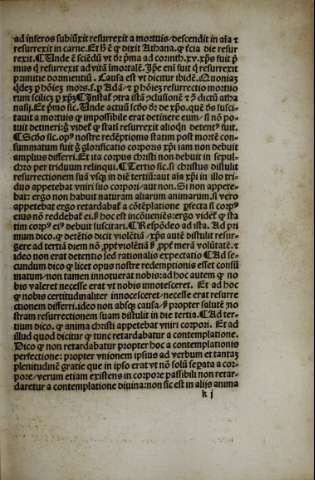 ad inferos subiũxit resurrexit a mortuis. descendit in aĩa ⁊
resurrexit in carne. Et B ẽ ꝙ dixit Athana. ꝙ tcia die resur
rexit. ¶ Unde ẽ sciẽdũ vt dr̃ pa ad corinth. xv. xp̃s fuit p̃
mus ꝗ resurrexit ad vitã imortalẽ. Ip̃e eni fuit ꝗ resurrexit
primitie dormientiũ. Causa est vt dicitur ibidẽ. Quoniaz
ꝗdez p hoĩez mors. s. p Adã. ⁊ p hoĩez resurrectio mortuo
rum scilicz p xp̃z ¶ Instat
rõ. Et primo sic. Unde
tauit a mortuis ꝙ impossibile erat detinere eum. si nõ po
tuit detineri: videt ꝙ stati resurrexit alioqn detent fuit.
¶ Scdo sic. op nostre redẽptionis statim post mortẽ con
summatum fuit ꝗ glorificatio corporis xp̃i iam non debuit
amplius differri. Et ita corpus christi non debuit in sepul
chro per triduum relinqui. ¶ Tertio sic. si christus distulit
resurrectionem suã vsq in diẽ tertiã: aut aĩa xp̃i in illo tri
duo appetebat vniri suo corpori. aut non. Si non appete
bat: ergo non habuit naturam aliarum animarum. si vero
appetebat ergo retardabat a cõtẽplatione pfecta si corp
eius nõ reddebat ei. B hoc est incõueniẽs: ergo videt ꝙ sta
tim corp ei debuit suscitari. ¶ Respõdeo ad ista. Ad pri
mum dico. ꝙ detẽtio dicit violẽtiã xp̃us autẽ distulit resur-
gere ad tertiã diem nõ ꝓpt violẽtiã B ꝓpt merã volũtatẽ. ⁊
ideo non erat detentio sed rationalis expectatio ¶ Ad se-
cundum dico ꝙ licet opus nostre redemptionis esset consũ
matum. non tamen innotuerat nobis: ad hoc autem ꝙ no
bis valeret necesse erat vt nobis innotesceret. Et ad hoc
ꝙ nobis certitudinaliter innotesceret. necesse erat resurre
ctionem differri. ideo non absq causa. B propter salutẽ no
stram resurrectionem suam distulit in die tertia. ¶ Ad ter-
tium dico. ꝙ anima christi appetebat vniri corpori. Et ad
illud quod dicitur ꝙ tunc retardabatur a contemplatione.
Dico ꝙ non retardabatur propter hoc a contemplationis
perfectione: propter vnionem ipsius ad verbum et tantaz
plenitudinẽ gratie que in ipso erat vt nõ solũ sepata a cor-
pore. verum etiam existens in corpore passibili non retar-
daretur a contemplatione diuina: non sic est in alijs anima
k j